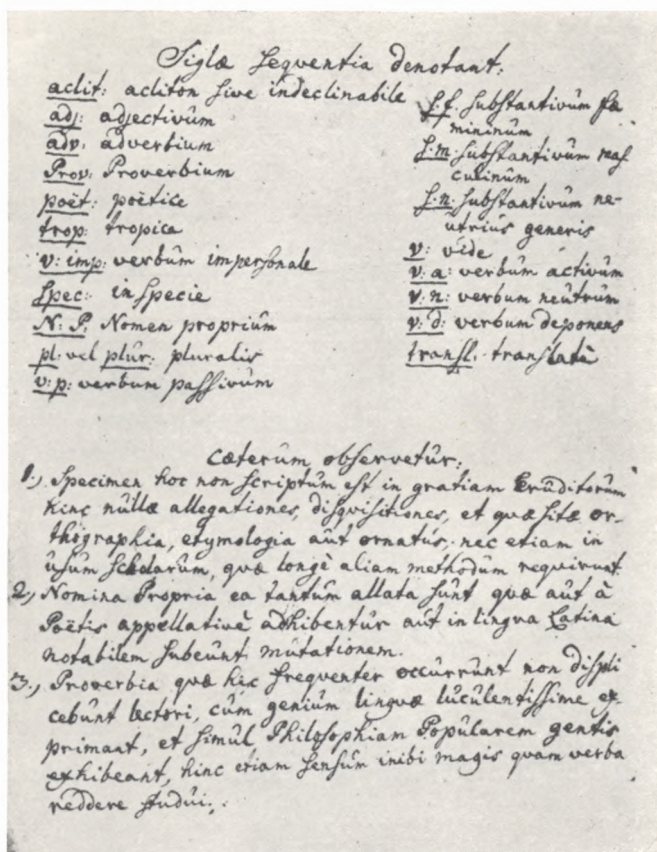 Siglæ sequentia denotant:
aclit: acliton sive indeclinabile
adj: adjectivum
adv: adverbium
Prov: Proverbium
poët: poëtice
trop: tropica
v: imp: verbum impersonale
spec: in specie
N: P. Nomen proprium
pl: vel plur: pluralis
v: p: verbum passivum
s. f. substantivum fæ
mininum
s. m. substantivum mas
culinum
s. n. substantivum ne-
utrius generis
v: vide
v: a: verbum activum
v: n: verbum neutrum
v: d: verbum deponens
transl. translatè
Cæterum observetur:
1., Specimen hoc non scriptum est in gratiam Eruditorum
hinc nullæ allegationes, disqvisitiones, et qvæsitæ or-
thographia, etymologia aut ornatus, nec etiam in
usum scholarum, qvæ longè aliam methodum reqvirunt
2., Nomina Propria ea tantum allata sunt qvæ aut à
Poëtis appellativè adhibentur aut in lingva Latina
notabilem subeunt mutationem.
3., Proverbia qvæ hic freqventer occurrunt non displi
cebunt lectori, cum genium lingvæ luculentissime ex-
primant, et simul Philosophiam Popularem gentis
exhibeant, hinc etiam sensum inibi magis qvam verba
reddere studui.